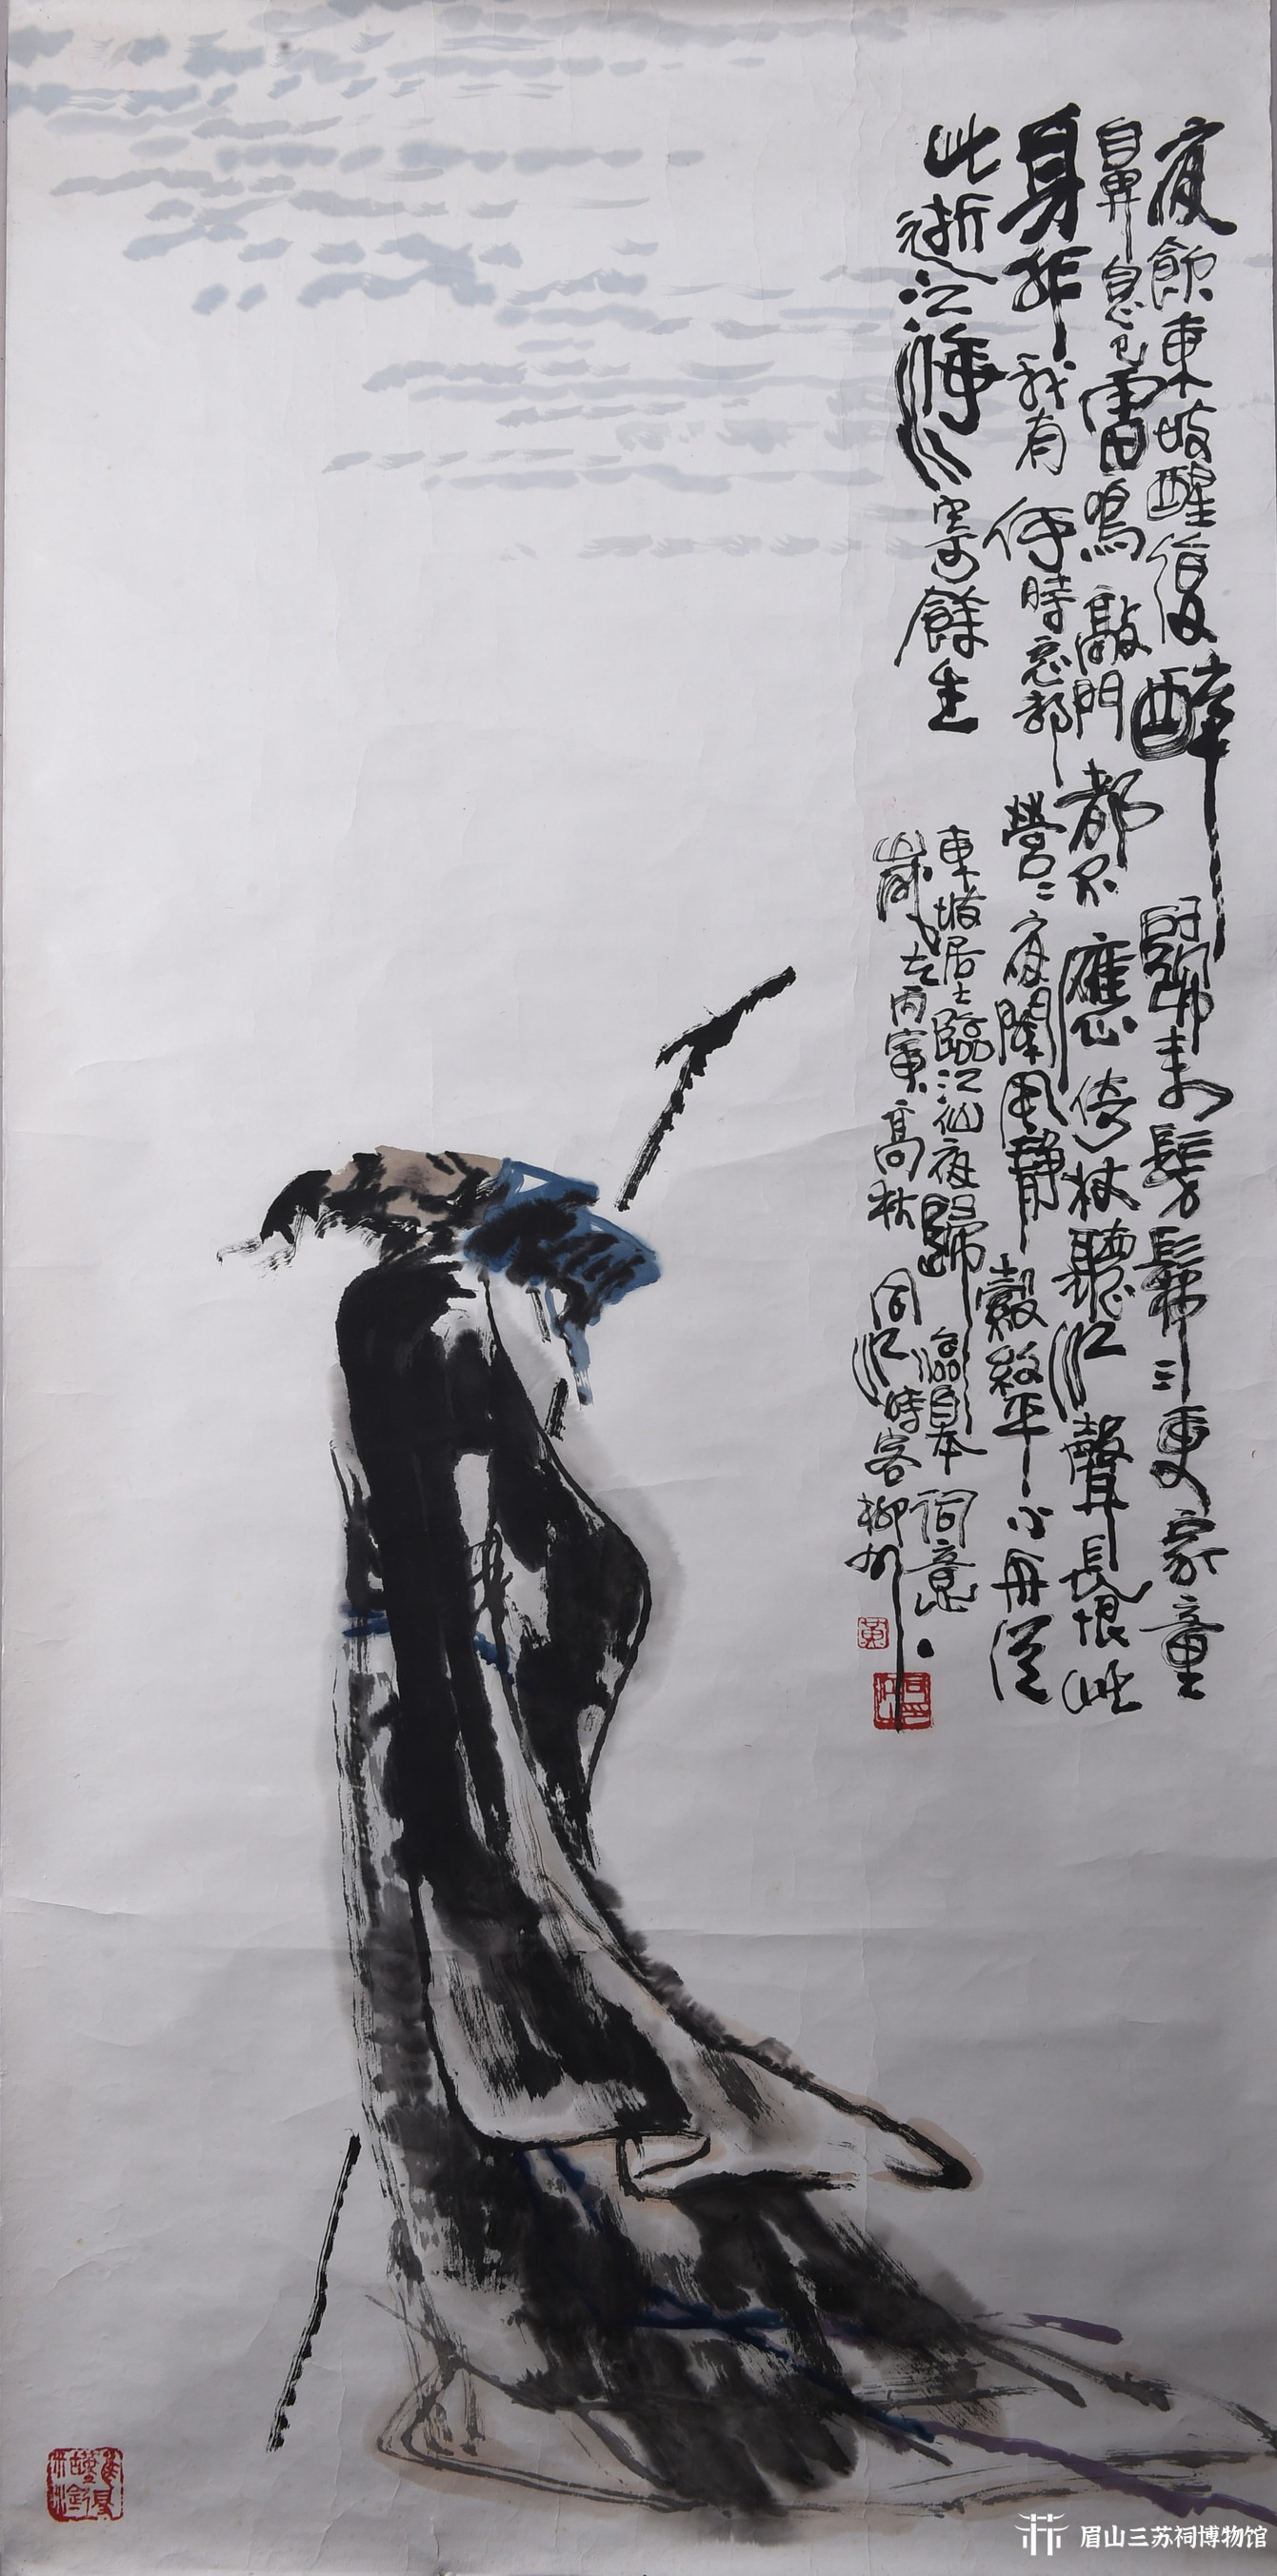 夜飲東坡醒復醉歸來髣髴三更家童
鼻息已雷鳴敲門都不應倚杖聽江聲長恨此
身非我有何時忘卻營〻夜闌風靜縠紋平小舟從
此逝江海寄餘生
東坡居士臨江仙夜歸臨皋本詞意
歲在丙寅高秋同江時客柳州
黃
眉山三苏祠博物馆